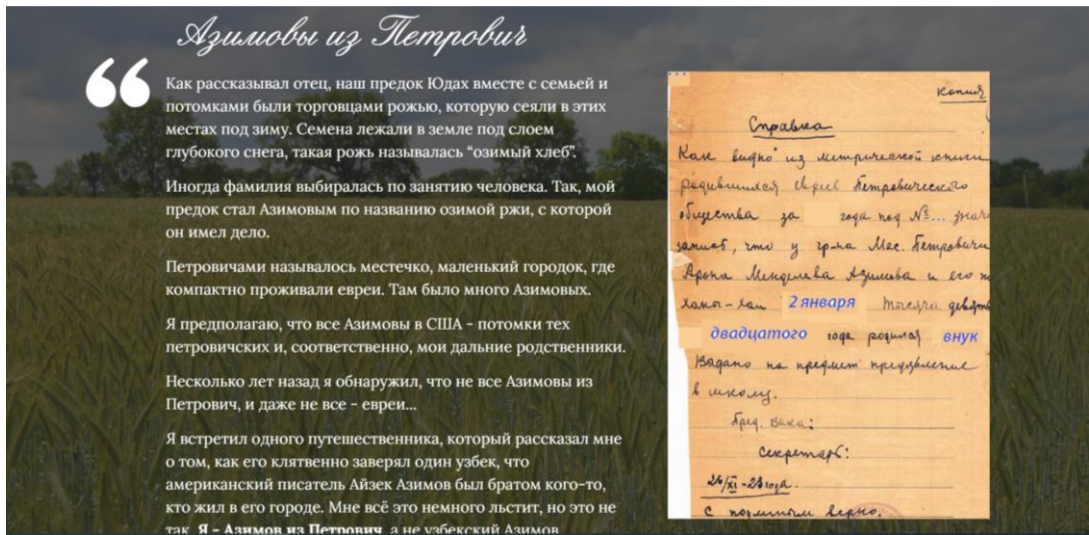 Азимовы из Петрович
Как рассказывал отец, наш предок Юдах вместе с семьей и
потомками были торговцами рожью, которую сеяли в этих
местах под зиму. Семена лежали в земле под слоем
глубокого снега, такая рожь называлась “озимый хлеб”.
Иногда фамилия выбиралась по занятию человека. Так, мой
предок стал Азимовым по названию озимой ржи, с которой
он имел дело.
Петровичами называлось местечко, маленький городок, где
компактно проживали евреи. Там было много Азимовых.
Я предполагаю, что все Азимовы в США - потомки тех
петровичских и, соответственно, мои дальние родственники.
Несколько лет назад я обнаружил, что не все Азимовы из
Петрович, и даже не все - евреи...
Я встретил одного путешественника, который рассказал мне
о том, как его клятвенно заверял один узбек, что
американский писатель Айзек Азимов был братом кого-то,
кто жил в его городе. Мне всё это немного льстит, но это не
так. Я - Азимов из Петрович, а не узбекский Азимов
копия
Справка
Как видно из метрической книги
родившихся евреев Петровического
общества за года под №... знач
запись, что у гр-на Мес. Петровичи
Арона Менделева Азимова и его ж
Ханы-Хаи 2 января тысяча девят
двадцатого года родился внук
Выдано на предмет предъявления
в школу.
Пред. вика:
Секретарь:
26/XI-23 года.
С подлинным верно.